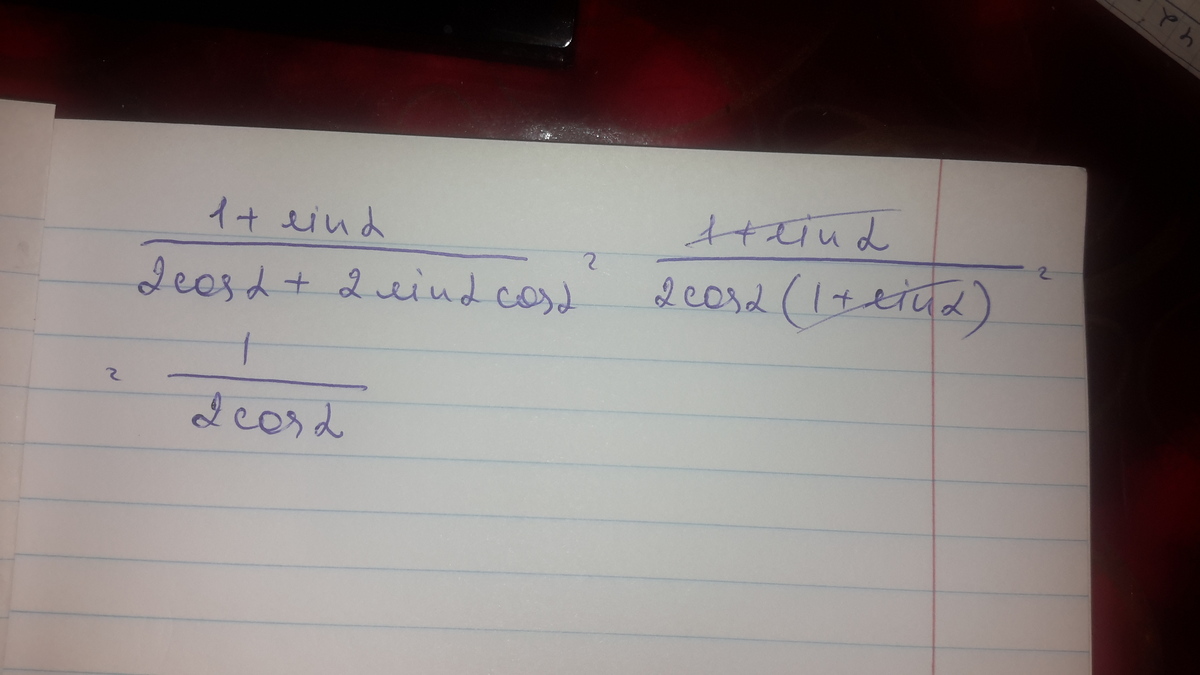 (1 + sin α) / (2cos α + 2 sin α cos α) = (1 + sin α) / (2cos α (1 + sin α)) =
= 1 / (2cos α)